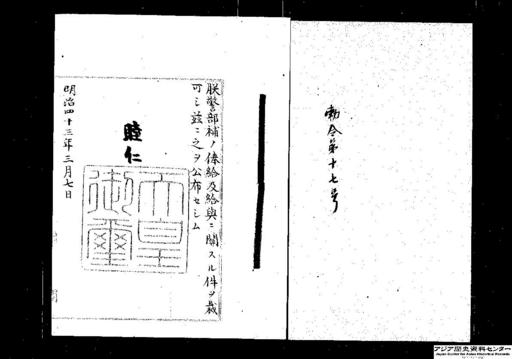 勅令第十七号
朕警部補ノ俸給及給與ニ關スル件ヲ裁
可シ茲ニ之ヲ公布セシム
睦仁
天皇御璽
明治四十三年三月七日
アジア歴史資料センター
Japan Center for Asian Historical Records